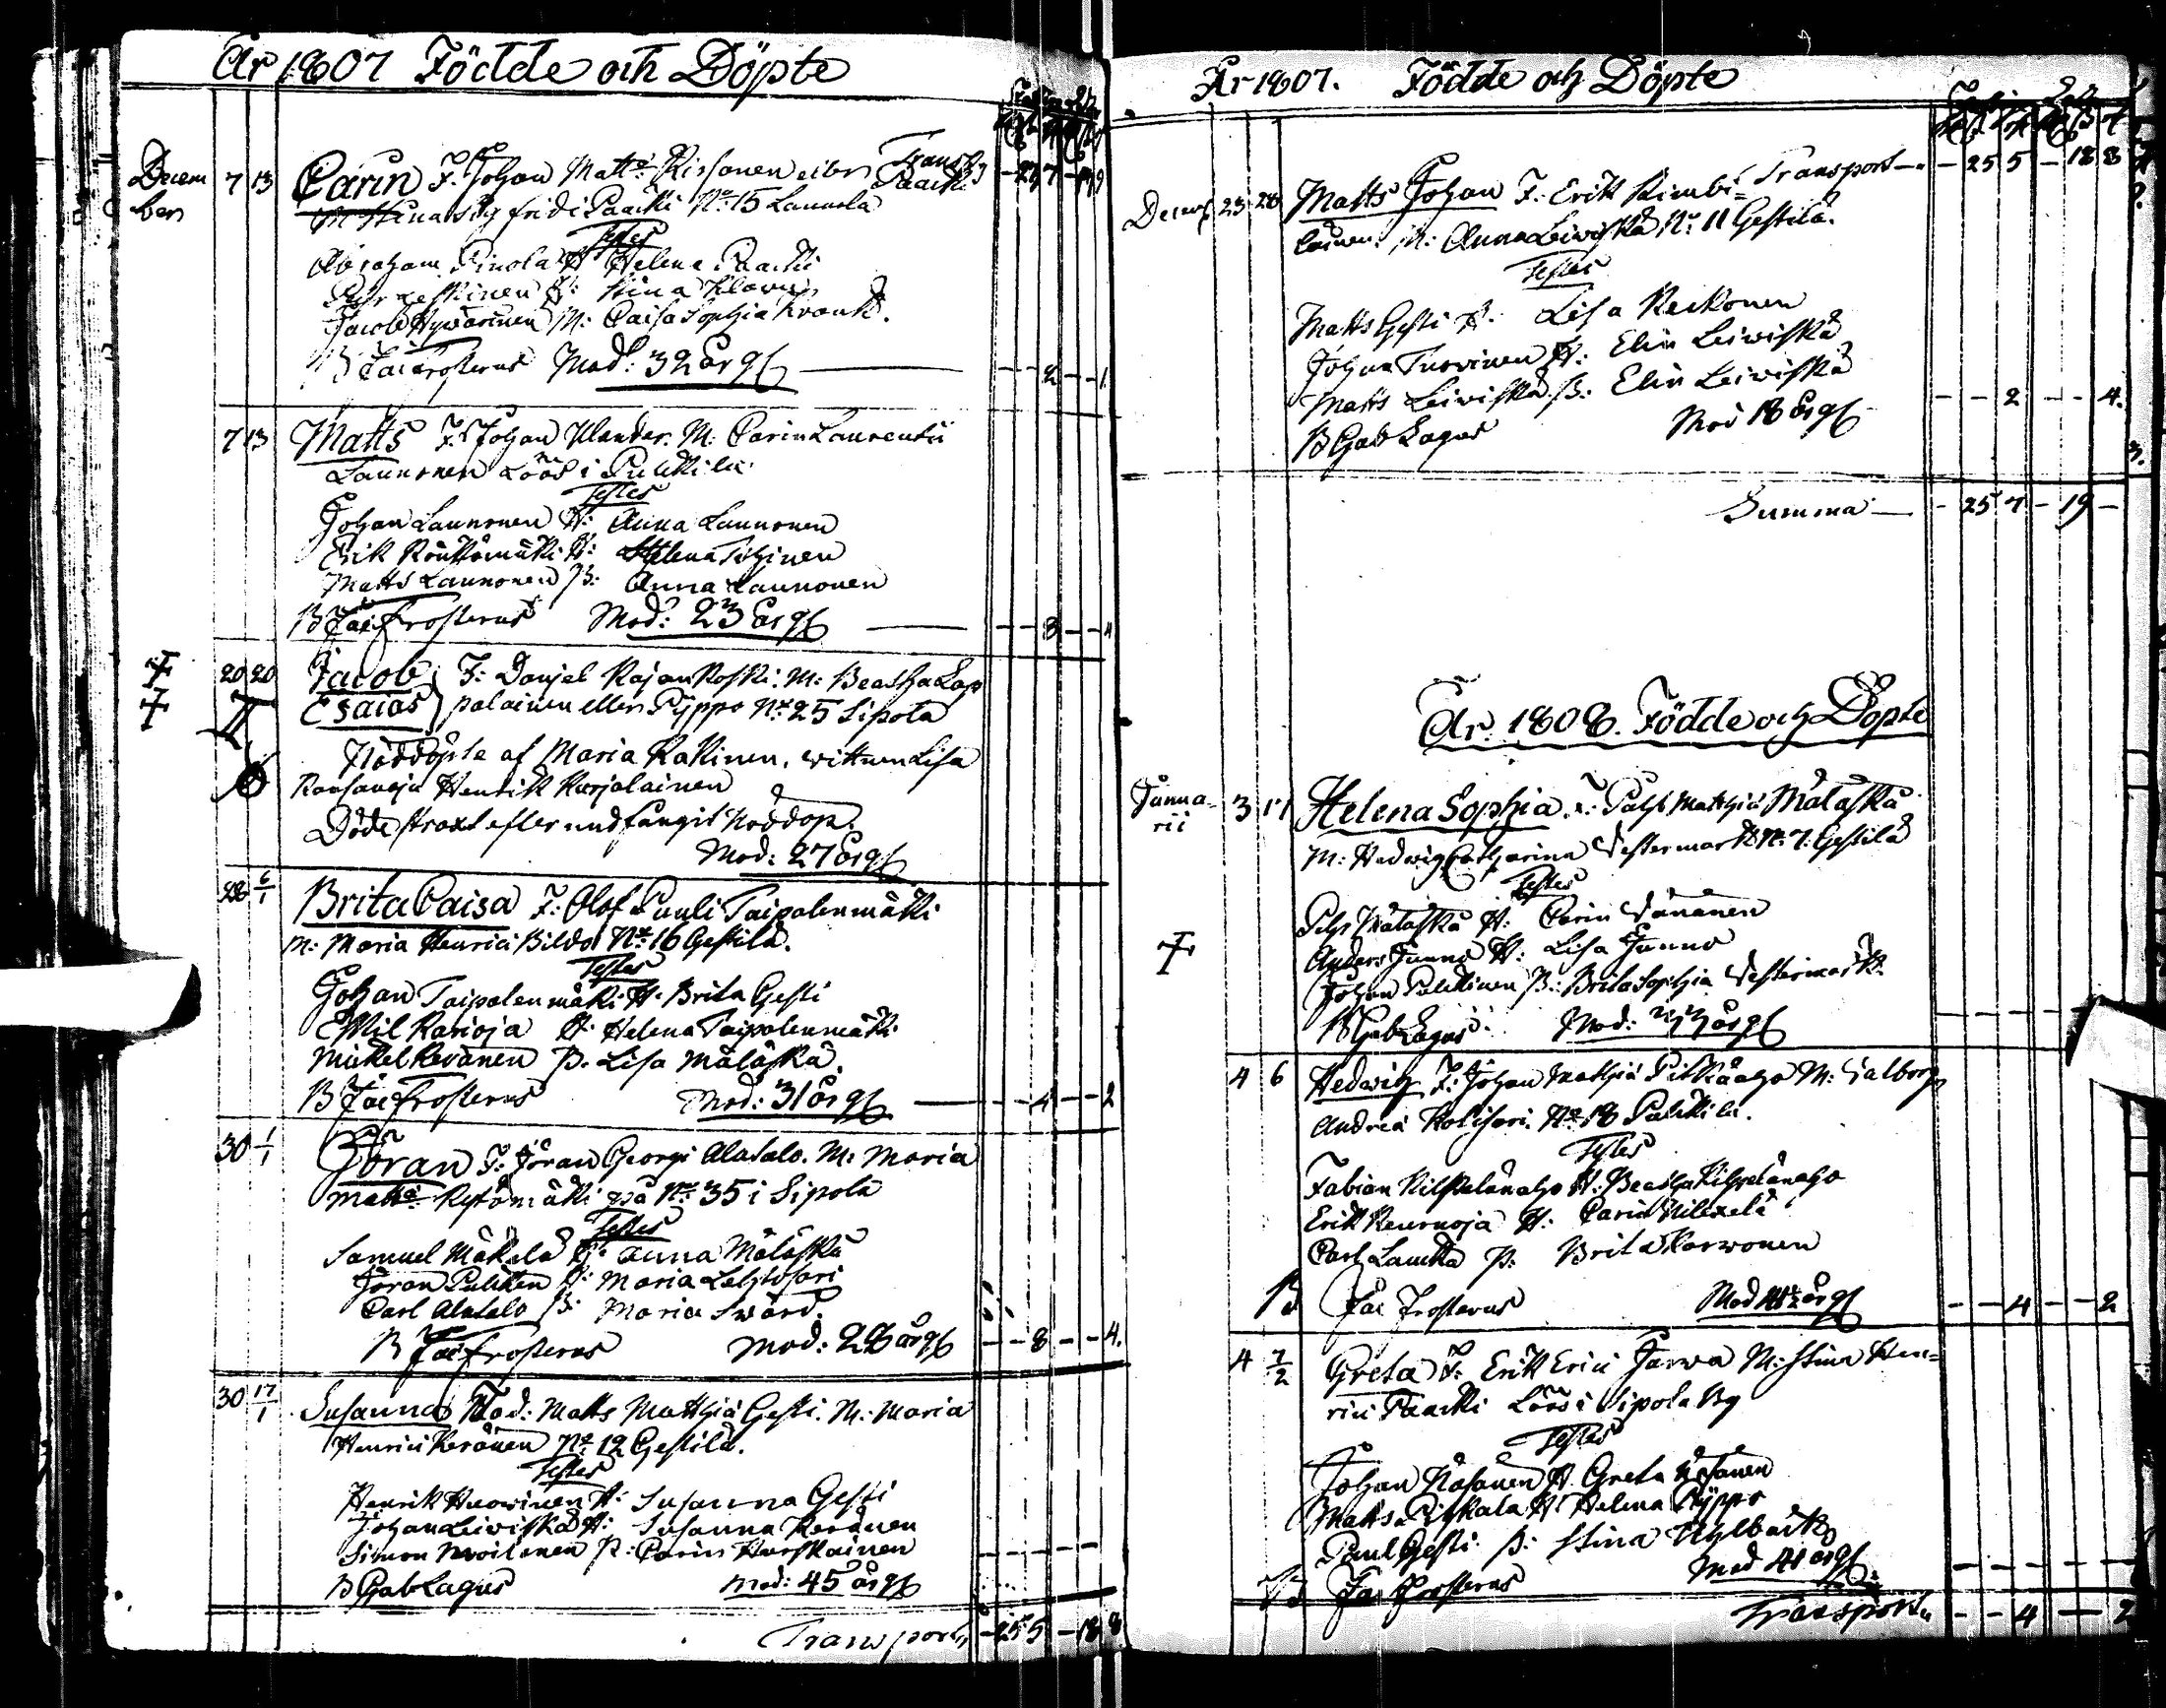 År 1807 Födde och Döpte
Decem
ber
7 13 Carin F: Johan Matts: Rissonen eller Paacki
M: Stina Sigfridi Paacki No 15 Launola
Testes
Abraham Pinola H: Helena Paacki
Stina
Jacob Hywärinen M: Caisa Sophia Kranck.
B Jac Frosterus Mod: 32 år gl - - 2 - - 1
7 13 Matts F: Johan Ulander. M: Carin Laurentii
Launonen Löös i Pulkkila
Testes
Johan Launonen H: Anna Launonen
Erik Rönkömäki H: Helena Tihinen
Matts Launonen P: Anna Launonen
B Jac Frosterus Mod: 23 år gl - - 8 - - 4
20 20 Jacob F: Daniel Kajankoski. M: Beatha Lap
Esaias palainen eller Pyppo No 25 Sipola
Nöddöpte af Maria Kakinen, wittnen Lisa
Henrik Karjalainen
Döde straxt efter undfångit Nöddop.
Mod: 27 år gl
28 6/1 Brita Caisa F: Olof Pauli Taipalenmäki
M: Maria Henrici Bildo No 16 Gestilä.
Testes
Johan Taipalenmäki H: Brita Gesti
Eskil Karioja H: Helena Taipalenmäki
Mickel Keränen P. Lisa Mäläskä.
B Jac Frosterus Mod: 31 år gl - - 4 - - 2
30 1/1 Jöran F: Jöran Georgi Alatalo. M: Maria
Matts: på No 35 i Sipola
Testes
Samuel Mäkelä H: Anna Mäläskä
Jöran Pulkken H: Maria Lehtosari
Carl Alatalo P: Maria Swärd.
B Jac Frosterus Mod: 28 år gl - - 8 - - 4.
30 17/1 Susanna Fad: Matts Matthiæ Gesti. M: Maria
Henrici Keränen No 12 Gestilä.
Testes
Henrik Huowinen H: Susanna Gesti
Johan Leiwiskä H: Susanna Keränen
Simon Moilanen P: Carin Harskainen
B Gab Lagus Mod: 45 år gl
Transport - 25 5 - 18 8
År 1807. Födde och Döpte
Transport - 25 5 - 18 8
Decemb 23 28 Matts Johan F: Erik Kimbi=
läinen. M: Anna Leiwiskä No 11 Gestilä.
Testes
Matts Gesti H: Lisa Keckonen
Johan Turwinen H: Elin Leiwiskä
Matts Leiwiskä P: Elin Leiwiskä
B Gab Lagus Mod 18 år gl - - 2 - - 4.
Summa - 25 7 - 19 -
År 1808. Födde och Döpte
Janua-
rii
3 17 Helena Sophia. F: Påhl Matthiæ Mäläskä
M: Hedwig Catharina Westermark No 7. Gestilä
Testes
Påhl Mäläskä H: Carin Wänänen
Anders Junno H: Lisa Junno
Johan Pulkkinen P: Brita Sophia Westermark.
B Gab Lagus. Mod: år gl
4 6 Hedwig F: Johan Matthiæ Pitkäaho M: Walborg
Andreæ Kolisari No 18 Pulkkila.
Testes
Fabian Kilpelänaho H: Beatha Kilpelänaho
Erik Keurnoja H: Carin
Carl Laukka P: Brita Karwonen
B Jac Frosterus Mod år gl - - 4 - - 2
4 7/2 Greta F: Erik Erici Jarwa M: Stina Hen=
rici Paacki Löös i Sipola By
Testes
Johan Näsänen H: Greta Näsänen
Matts Pitkala H: Helena Pyppo
Paul Gesti P: Stina Uhlbäck
B Jac Frosterus Mod 41 år gl
Transport - - 4 - 2